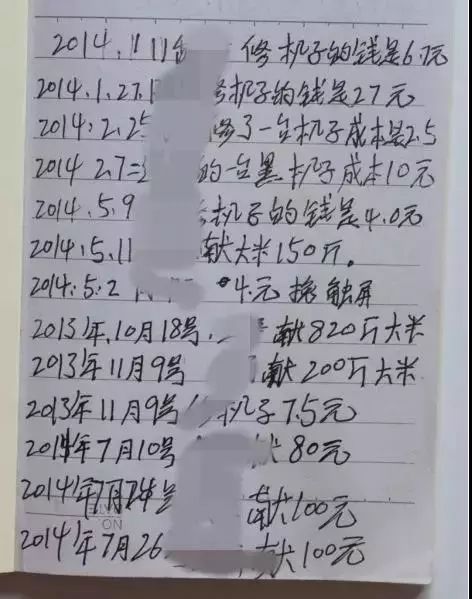 2014.1.11 修机子的钱是6.7元
2014.1.27. 修机子的钱是27元
2014.2.25 修了一台机子成本是2.5
2014 2.7 的一台黑机子成本10元
2014.5.9 机子的钱是4.0元
2014.5.11 献大米150斤。
2014.5.2 4.元 换触屏
2013年.10月18号. 献820斤大米
2013年11月9号 献200斤大米
2013年11月9号 机子7.5元
2014年7月10号 献80元
2014年7月24号 献100元
ON
2014年7月26 献100元